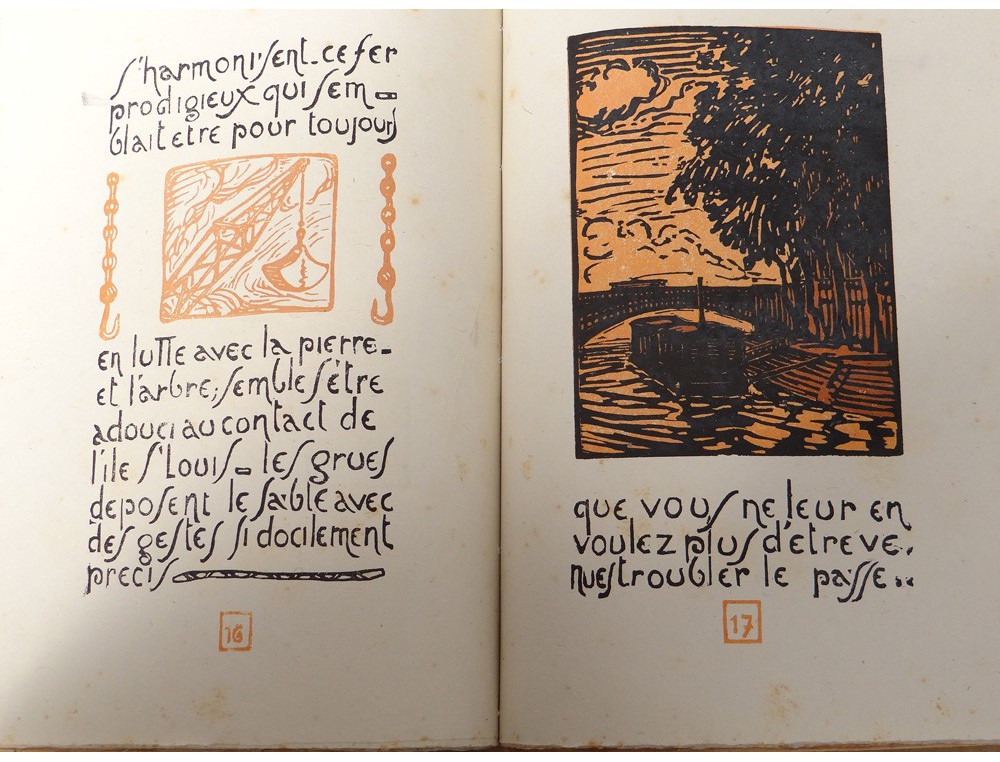 s'harmonisent_ce fer
prodigieux qui sem=
blait etre pour toujours
en lutte avec la pierre_
et l'arbre; semble s'être
adouci au contact de
l'ile St Louis_ les grues
deposent le sable avec
des gestes si docilement
precis
16
que vous ne leur en
voulez plus d'etre ve.
nues troubler le passe..
17